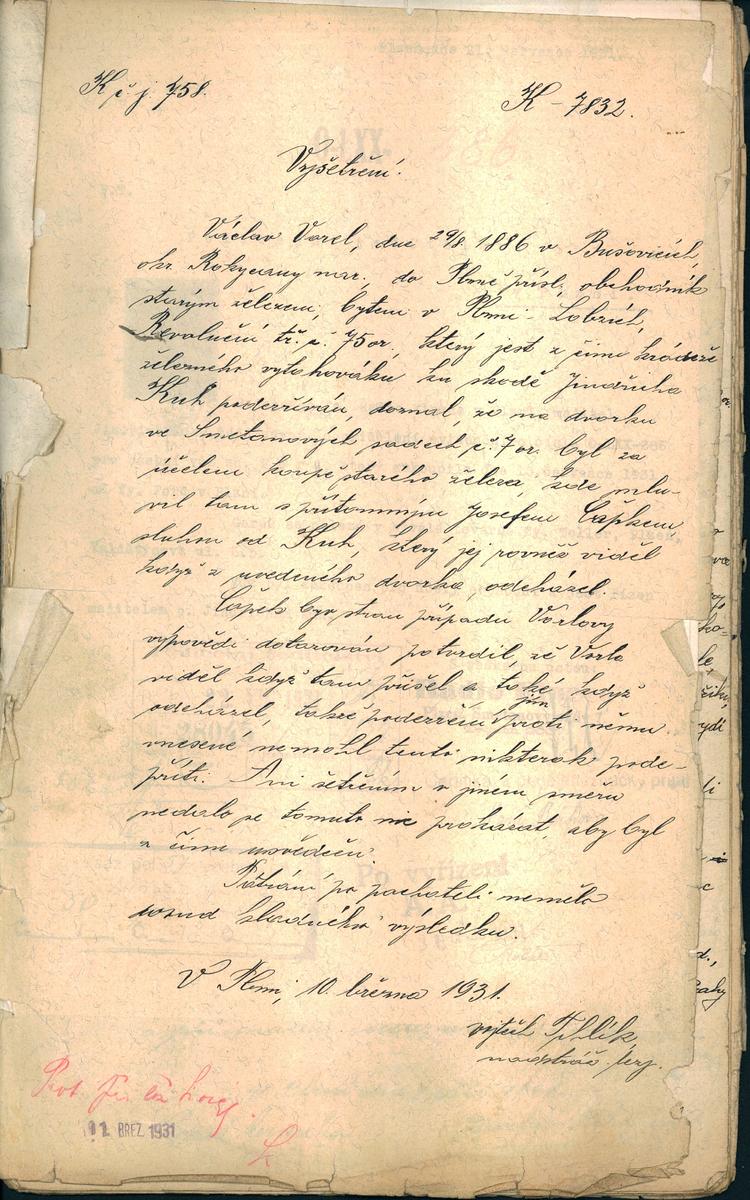 K č. j. 758.
K – 7832.
Vyšetření.
Václav Vorel, dne 29/8. 1886 v Bušovicích,
okr. Rokycany nar., do Plzně přísl., obchodník
starým železem, bytem v Plzni - Lobzích,
Revoluční tř. č. 75 or., který jest z činu krádeže
železného vytahováku ku škodě Jindřicha
Kuh podezříván, doznal, že na dvorku
ve Smetanových sadech č. 7 or. byl za
účelem koupě starého železa, kde mlu-
vil tam s přítomným Josefem Čapkem
sluhou od Kuh, který jej rovněž viděl
když z uvedeného dvorka odcházel.
Čapek byv stran případu Vorlovy
výpovědi dotazován potvrdil, že Vorla
viděl když tam přišel a také, když
odcházel, takže podezření jím proti němu
vnesené nemohl tento nikterak pode-
příti. Ani šetřením v jiném směru
nedalo se tomuto nic prokázat, aby byl
z činu usvědčen.
Pátrání po pachateli nemělo
dosud kladného výsledku.
V Plzni, 10. března 1931.
Vojtěch
nadstráž.
11. BŘEZ. 1931